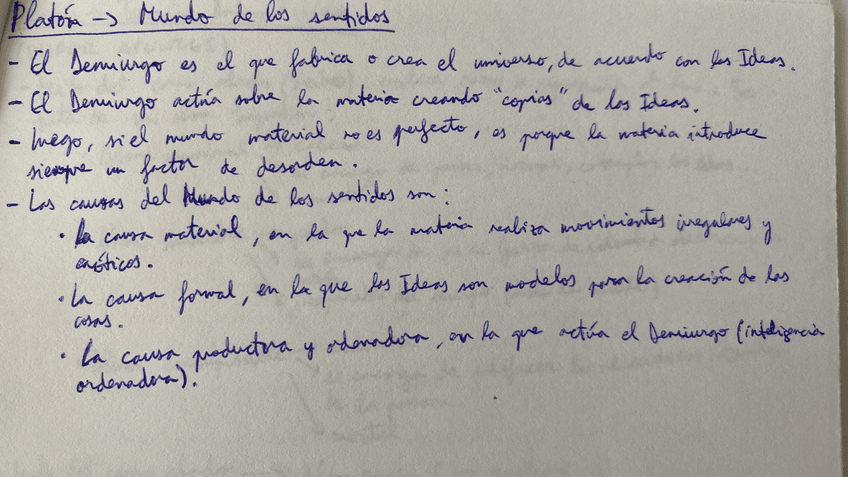 Platón -> Mundo de los sentidos
- El Demiurgo es el que fabrica o crea el universo, de acuerdo con las Ideas.
- El Demiurgo actúa sobre la materia creando "copias" de las Ideas.
- Luego, si el mundo material no es perfecto, es porque la materia introduce
siempre un factor de desorden.
- Las causas del Mundo de los sentidos son:
· La causa material, en la que la materia realiza movimientos irregulares y
caóticos.
· La causa formal, en la que las Ideas son modelos para la creación de las
cosas.
· La causa productora y ordenadora, en la que actúa el Demiurgo (inteligencia
ordenadora).